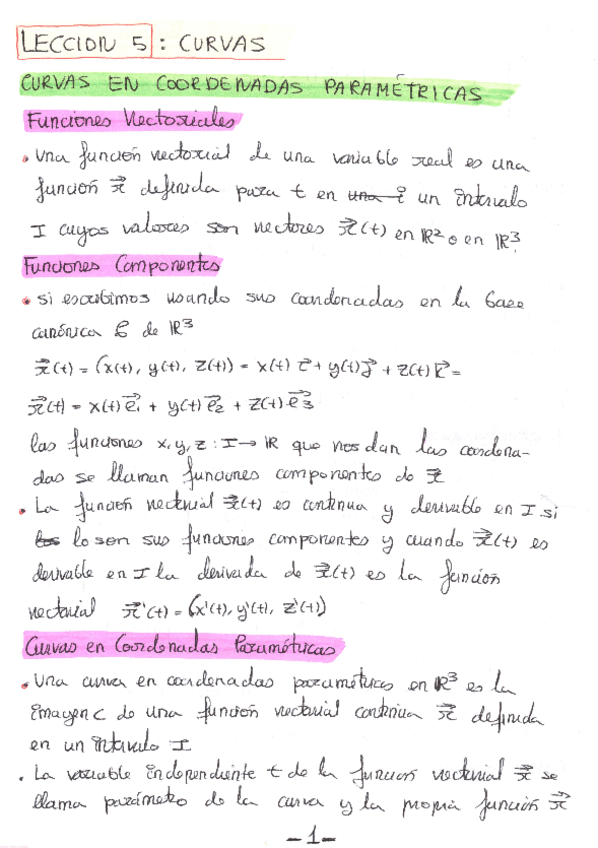 LECCION 5: CURVAS
CURVAS EN COORDENADAS PARAMÉTRICAS
Funciones Vectoriales
• Una función vectorial de una variable real es una
función r⃗ definida para t en una i un intervalo
I cuyos valores son vectores r⃗(t) en ℝ² o en ℝ³.
Funciones Componentes
• si escribimos usando sus coordenadas en la base
canónica C de ℝ³
r⃗(t) = (x(t), y(t), z(t)) = x(t) i⃗ + y(t) j⃗ + z(t) k⃗ =
r⃗(t) = x(t) e⃗₁ + y(t) e⃗₂ + z(t) e⃗₃
las funciones x, y, z : I → ℝ que nos dan las coordena-
das se llaman funciones componentes de r⃗
• La función vectorial r⃗(t) es continua y derivable en I si
los lo son sus funciones componentes y cuando r⃗(t) es
derivable en I la derivada de r⃗(t) es la función
vectorial r⃗'(t) = (x'(t), y'(t), z'(t))
Curvas en Coordenadas Paramétricas
• Una curva en coordenadas paramétricas en ℝ³ es la
imagen C de una función vectorial continua r⃗ definida
en un intervalo I
• La variable independiente t de la función vectorial r⃗ se
llama parámetro de la curva y la propia función r⃗
-1-